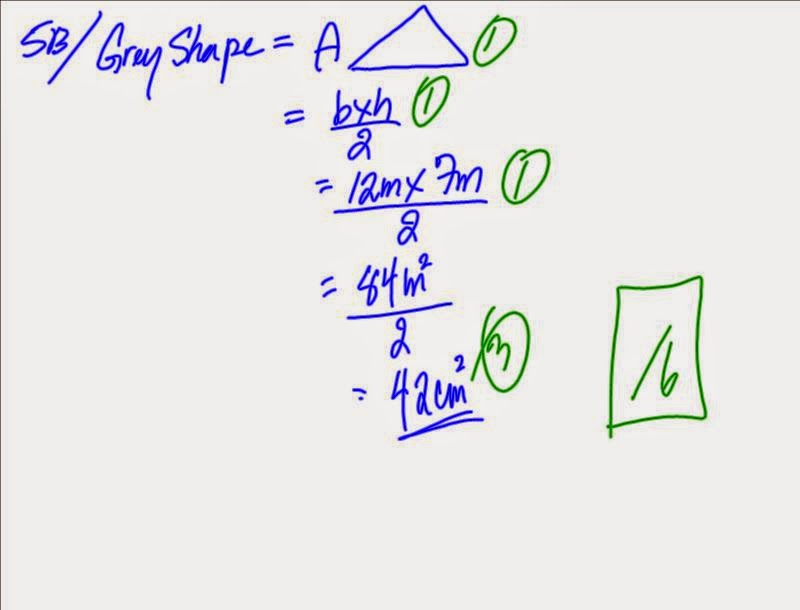 5B/ Grey Shape = A △ ①
= bxh/2 ①
= 12m x 7m/2 ①
= 84m²/2
= 42cm² /③
/6